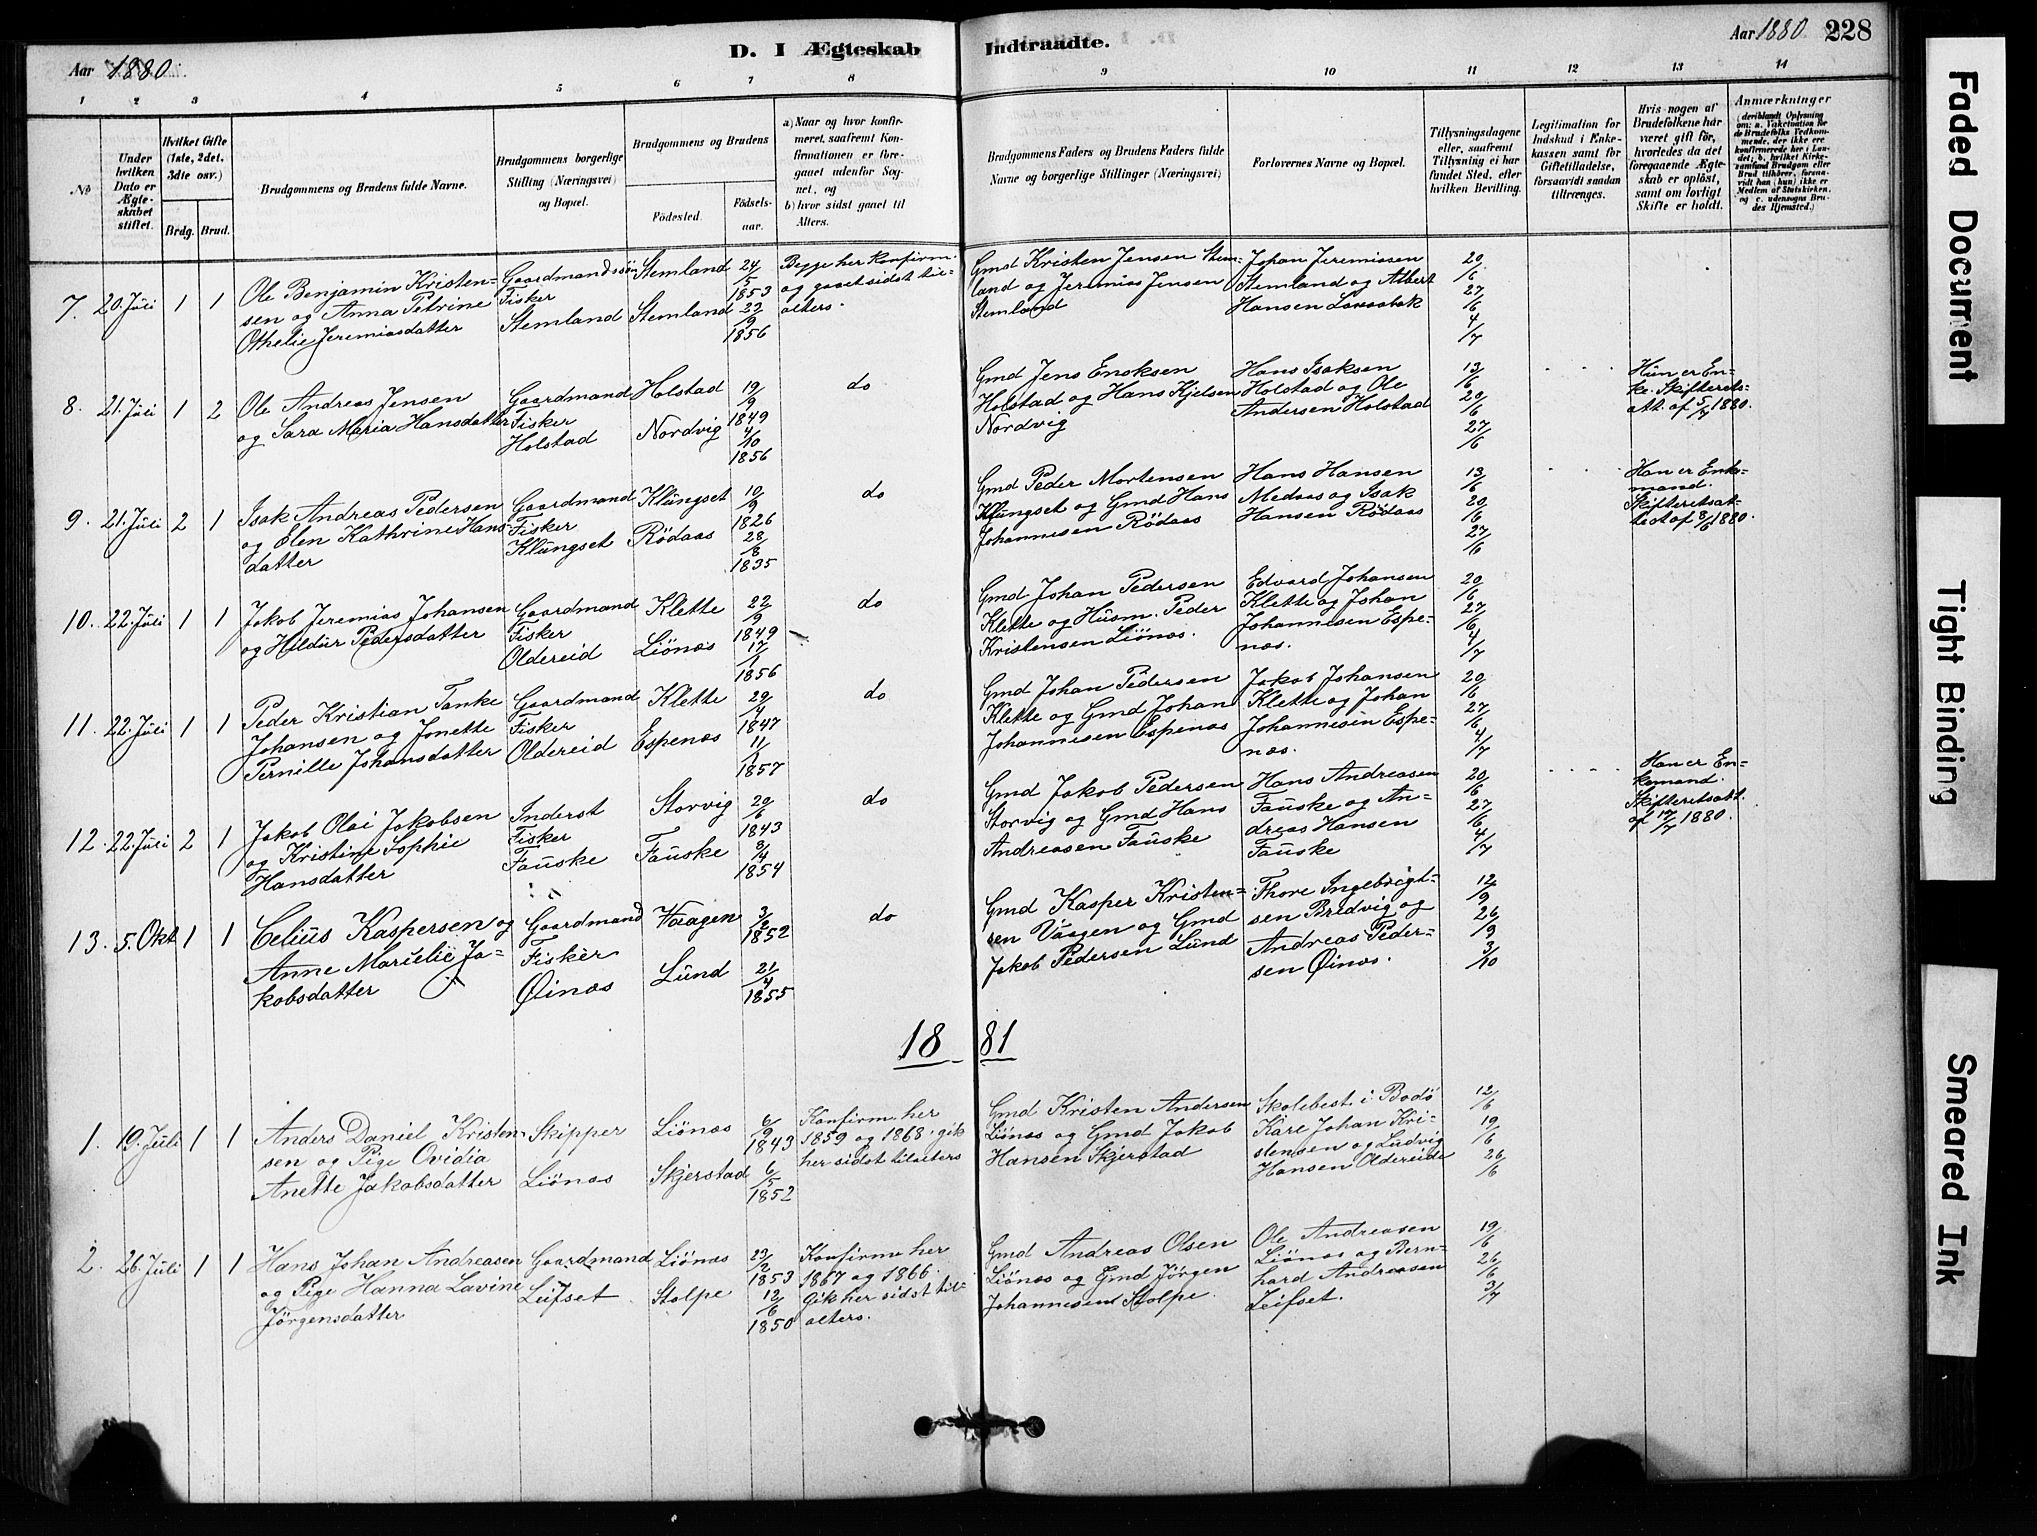 Aar 1880.
D. I Ægteskab Indtraadte.
Aar 1880 228
1 2 3 4 5 6 7 8 9 10 11 12 13 14
No
Under hvilken Dato er Ægteskabet stiftet.
Hvilket Gifte (1ste, 2det, 3die osv.)
Brdg. Brud.
Brudgommens og Brudens fulde Navne.
Brudgommens borgerlige Stilling (Næringsvei) og Bopæl.
Brudgommens og Brudens
Fødested.
Fødsels-aar.
a) Naar og hvor konfirmeret, saafremt Konfirmationen er foregaaet udenfor Sognet, og
b) hvor sidst gaaet til Alters.
Brudgommens Faders og Brudens Faders fulde Navne og borgerlige Stillinger (Næringsvei)
Forlovernes Navne og Bopæl.
Tillysningsdagene eller, saafremt Tillysning ei har fundet Sted, efter hvilken Bevilling.
Legitimation for Indskud i Enkekassen samt for Giftetilladelse, forsaavidt saadan tiltrænges.
Hvis nogen af Brudefolkene har været gift før, hvorledes da det foregaaende Ægteskab er opløst, samt om lovligt Skifte er holdt.
Anmærkninger
7. 20. Juli 1 1
Ole Benjamin Kristen-
sen og Anna Petrine
Othelie Jeremiasdatter
Gaardmandssøn
Fisker
Stemland
Stemland
Stemland
24/5 1853
23/9 1856
Begge her konfirm.
og gaaet sidst til-
alters.
Gmd Kristen Jensen Stem-
land og Jeremias Jensen
Stemland
Johan Jeremiasen
Stemland og Albert
Hansen
20/6
27/6
4/7
8. 21. Juli 1 2
Ole Andreas Jensen
og Sara Maria Hansdatter
Gaardmand
Fisker
Holstad
Holstad
Nordvig
19/9 1849
4/10 1856
do
Gmd Jens Enoksen
Holstad og Hans Kjelsen
Nordvig
Hans Isaksen
Holstad og Ole
Andersen Holstad
13/6
20/6
27/6
Hun er En-
ke. Skifterets-
att. af 5/7 1880.
9. 21. Juli 2 1
Isak Andreas Pedersen
og Elen Kathrine Hans-
datter
Gaardmand
Fisker
Klungset
Klungset
Rödaas
10/9 1826
28/8 1835
do
Gmd Peder Mortensen
Klungset og Gmd Hans
Johannesen Rödaas
Hans Hansen
Medaas og Isak
Hansen Rödaas
13/6
20/6
27/6
Han er Enke-
mand.
Skifteretsat-
test af 8/6 1880.
10. 22. Juli 1 1
Jakob Jeremias Johansen
og Hildur Pedersdatter
Gaardmand
Fisker
Oldereid
Klette
Liönæs
22/9 1849
17/1 1856
do
Gmd Johan Pedersen
Klette og Husm. Peder
Kristensen Liönæs.
Edvard Johansen
Klette og Johan
Johannesen Espe-
næs.
20/6
27/6
4/7
11. 22. Juli 1 1
Peder Kristian Tanke
Johansen og Jonette
Pernille Johansdatter
Gaardmand
Fisker
Oldereid
Klette
Espenæs
29/4 1847
11/1 1857
do
Gmd Johan Pedersen
Klette og Gmd Johan
Johannesen Espenæs
Jakob Johansen
Klette og Johan
Johannesen Espe-
næs.
20/6
27/6
4/7
12. 22. Juli 2 1
Jakob Olai Jakobsen
og Kristine Sophie
Hansdatter
Inderst
Fisker
Fauske
Storvig
Fauske
20/6 1843
8/4 1854
do
Gmd Jakob Pedersen
Storvig og Gmd Hans
Andreasen Fauske
Hans Andreasen
Fauske og An-
dreas Hansen
Fauske
20/6
27/6
4/7
Han er En-
kemand.
Skifteretsatt.
af 17/7 1880.
13. 5. Okt 1 1
Celius Kaspersen og
Anne Marielie Ja-
kobsdatter
Gaardmand
Fisker
Øinæs
Vaagen
Lund
3/2 1852
21/4 1855
do
Gmd Kasper Kristen-
sen Vaagen og Gmd
Jakob Pedersen Lund
Thore Ingebrigt-
sen Bredvig og
Andreas Peder-
sen Øinæs.
12/9
26/9
3/10
1881
1. 19. Juli 1 1
Anders Daniel Kristen-
sen og Pige Ovidia
Anette Jakobsdatter
Skipper
Liönæs
Liönæs
Skjerstad
6/9 1843
6/5 1852
Konfirm. her
1859 og 1868. gik
her sidst tilalters
Gmd Kristen Andersen
Liönæs og Gmd Jakob
Hansen Skjerstad
Skolebest. i Bodö
Karl Johan Kri-
stensen og Ludvig
Hansen Oldereide
12/6
19/6
26/6
2. 26. Juli 1 1
Hans Johan Andreasen
og Pige Hanna Lavine
Jörgensdatter
Gaardmand
Leifset
Liönæs
Stolpe
23/2 1853
12/6 1850
Konfirm. her
1867 og 1866.
Gik her sidst til-
alters.
Gmd Andreas Olsen
Liönæs og Gmd Jörgen
Johannesen Stolpe.
Ole Andreasen
Liönæs og Bern-
hard Andreasen
Leifset.
19/6
26/6
3/7
Faded Document
Tight Binding
Smeared Ink